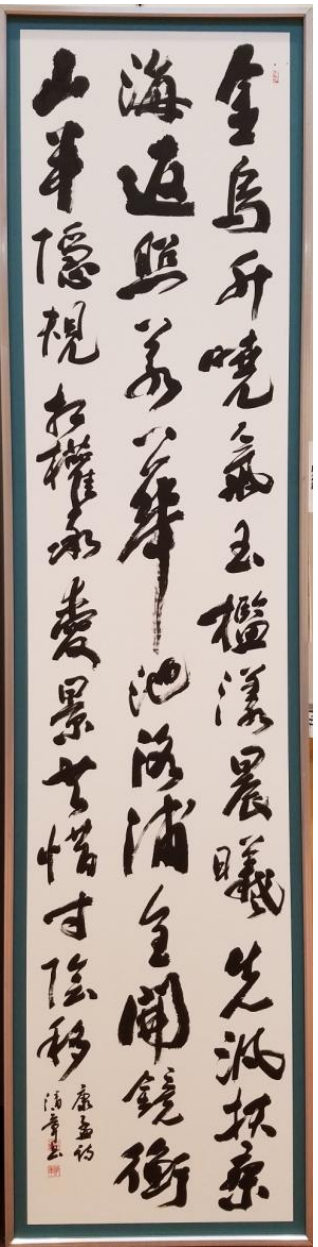 金烏升曉氣玉檻漾晨曦先泛扶桑
海返照若華池洛浦全開鏡衡
山半隱規相權承愛景共惜寸陰移
康孟詩
清章書